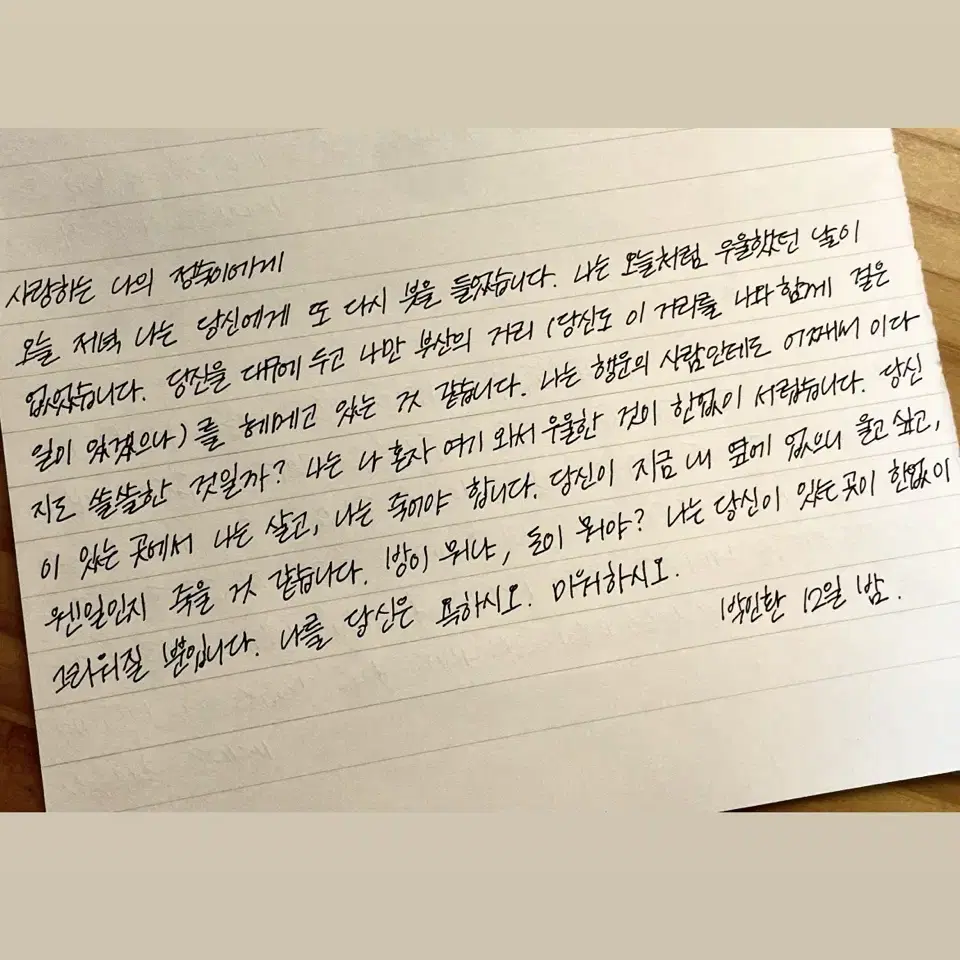 사랑하는 나의 정숙이에게
오늘 저녁 나는 당신에게 또 다시 붓을 들었습니다. 나는 오늘처럼 우울했던 날이
없었습니다. 당신을 대구에 두고 나만 부산의 거리 (당신도 이 거리를 나와 함께 걸은
일이 있겠으나)를 헤메고 있는 것 같습니다. 나는 행운의 사람인데도 어째서 이다
지도 쓸쓸한 것일까? 나는 나 혼자 여기 와서 우울한 것이 한없이 서럽습니다. 당신
이 있는 곳에서 나는 살고, 나는 죽어야 합니다. 당신이 지금 내 옆에 없으니 울고 싶고,
웬일인지 죽을 것 같습니다. 방이 뭐냐, 돈이 뭐야? 나는 당신이 있는 곳이 한없이
그리워질 뿐입니다. 나를 당신은 욕하시오. 미워하시오.
박인환 12일 밤.